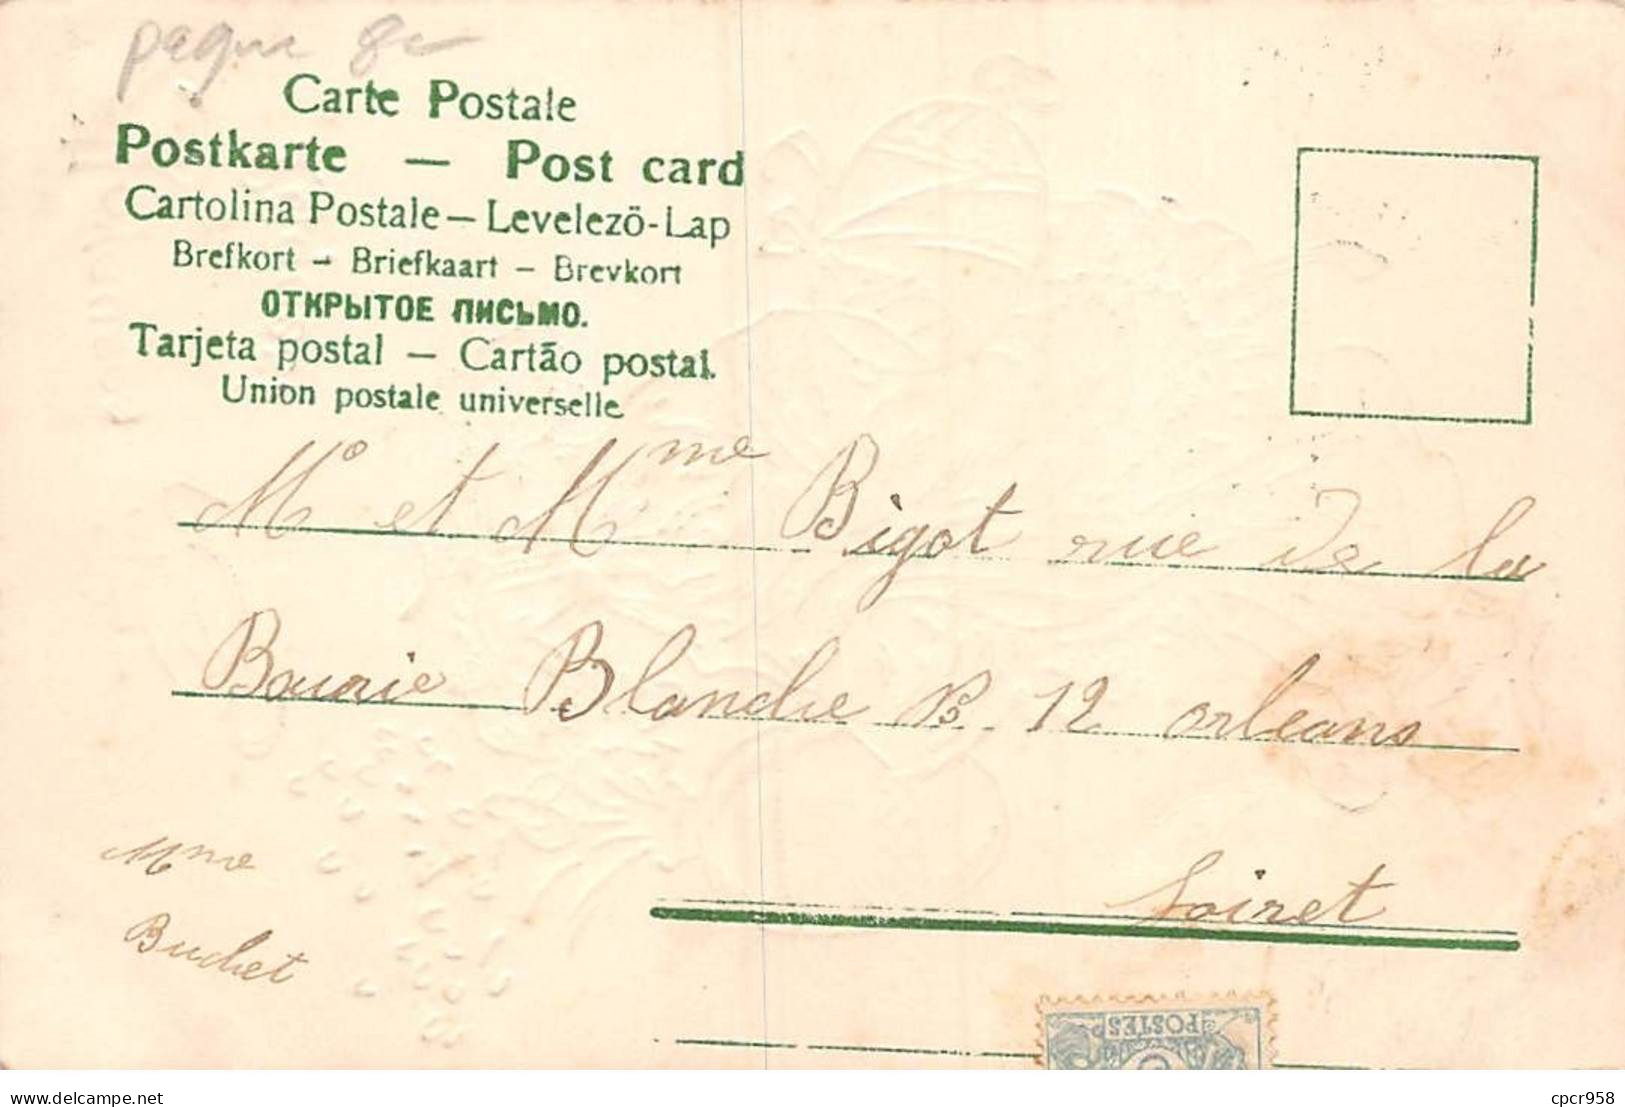 paque 8e
Carte Postale
Postkarte — Post card
Cartolina Postale — Levelezö-Lap
Brefkort — Briefkaart — Brevkort
ОТКРЫТОЕ ПИСЬМО.
Tarjeta postal — Cartão postal.
Union postale universelle
Mr et Mme Bigot rue de la
Bourie Blanche B. 12 orleans
Loiret
Mme
Buchet
POSTES
www.delcampe.net
cpcr958